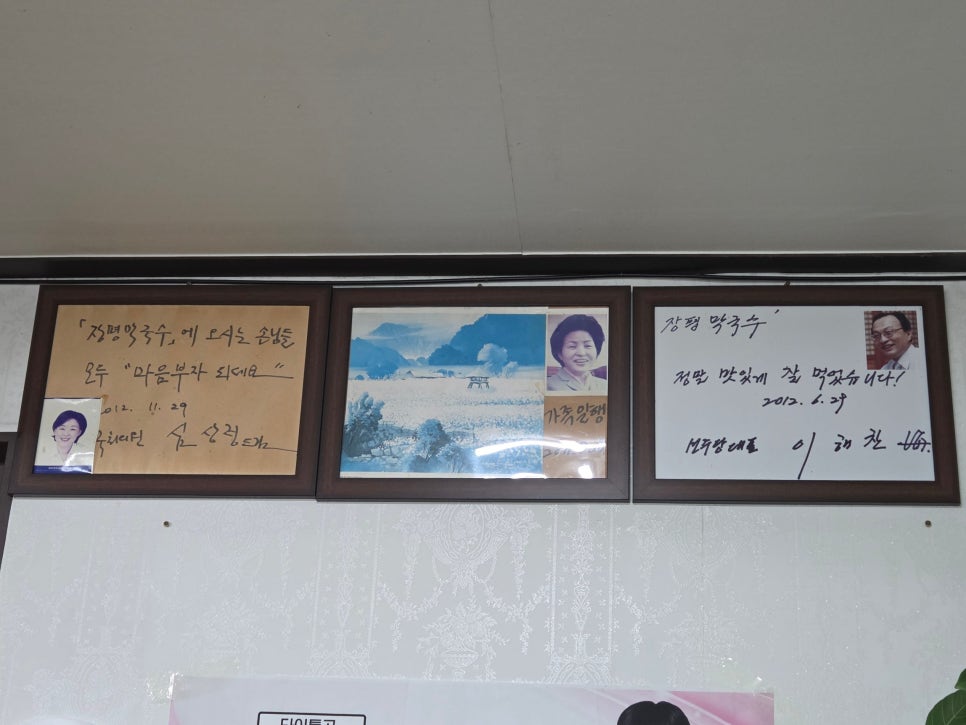 「장평막국수」에 오시는 손님들
모두 "마음부자 되세요"
2012. 11. 29
국회의원 심상정 드림
가족일행
장평 막국수
정말 맛있게 잘 먹었습니다!
2012. 6. 29
민주당대표 이해찬